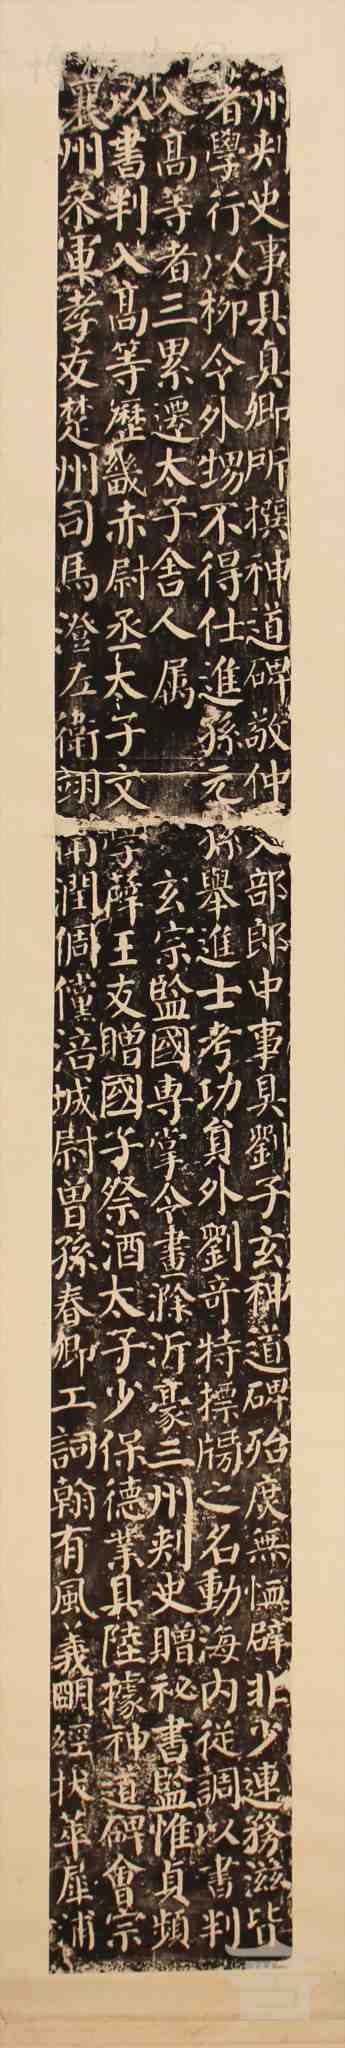 州刺史事具真卿所撰神道碑敬仲吏部郎中事具劉子玄神道碑殆庶無恤辟非少連務滋皆
著學行以柳令外甥不得仕進孫元孫舉進士考功員外劉奇特標牓之名動海內從調以書判
入高等者三累遷太子舍人屬玄宗監國專掌令畫滁沂豪三州刺史贈祕書監惟貞頻
以書判入高等歷畿赤尉丞太子文學薛王友贈國子祭酒太子少保德業具陸據神道碑會宗
襄州參軍孝友楚州司馬澄左衛翊衛潤倜儻涪城尉曾孫春卿工詞翰有風義明經拔萃犀浦